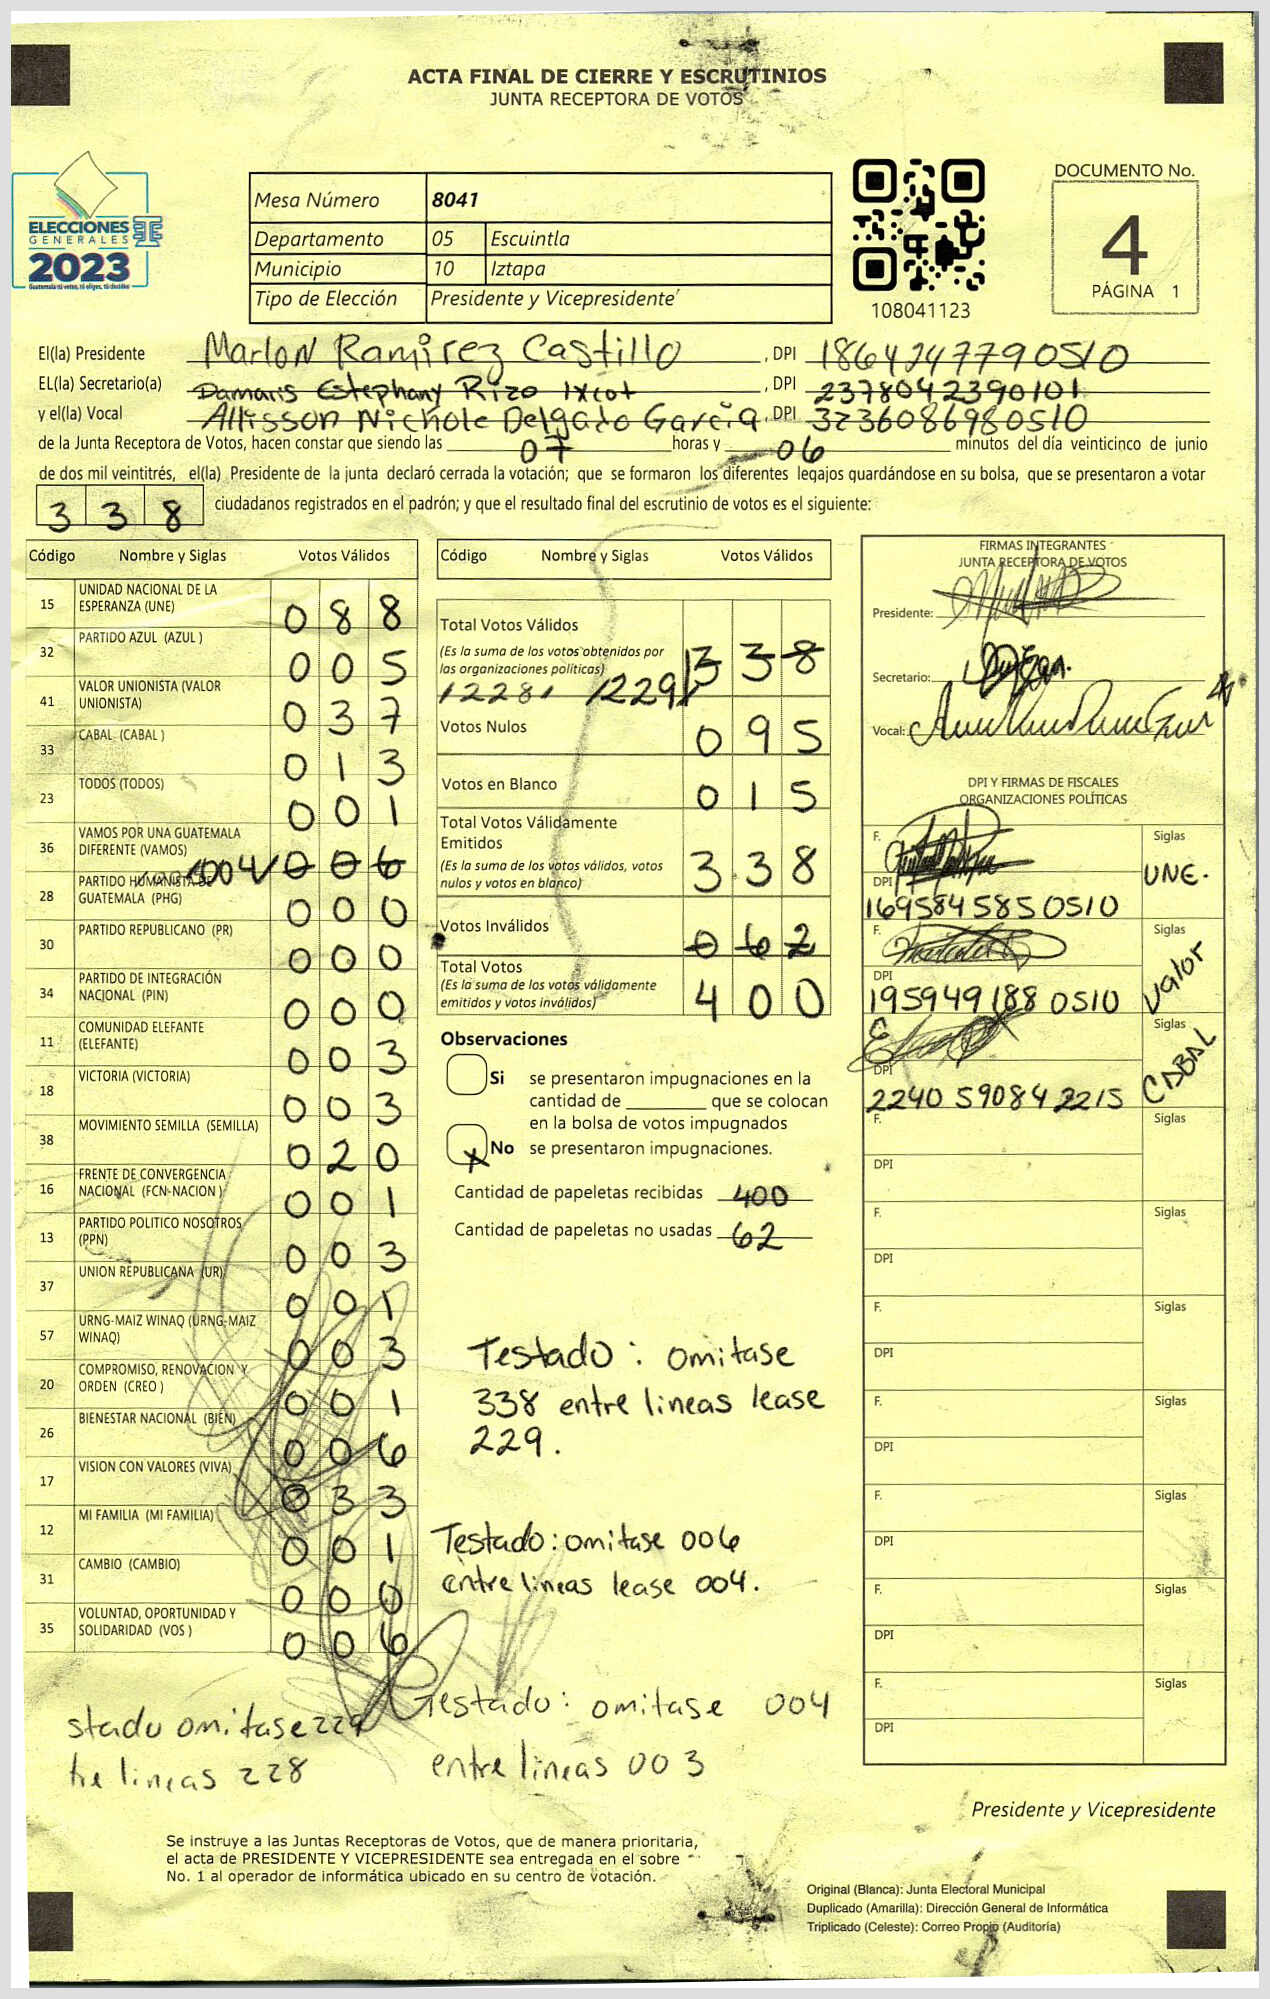 ACTA FINAL DE CIERRE Y ESCRUTINIOS
JUNTA RECEPTORA DE VOTOS
ELECCIONES
GENERALES
2023
Guatemala tú votas, tú eliges, tú decides
Mesa Número 8041
Departamento 05 Escuintla
Municipio 10 Iztapa
Tipo de Elección Presidente y Vicepresidente
108041123
DOCUMENTO No.
4
PÁGINA 1
El(la) Presidente Marlon Ramirez Castillo, DPI 1864247790510
EL(la) Secretario(a) Damaris Estephany Rizo Ixcot, DPI 2378042390101
y el(la) Vocal Allisson Nichole Delgado Garcia, DPI 3236086980510
de la Junta Receptora de Votos, hacen constar que siendo las 07 horas y 06 minutos del día veinticinco de junio
de dos mil veintitrés, el(la) Presidente de la junta declaró cerrada la votación; que se formaron los diferentes legajos guardándose en su bolsa, que se presentaron a votar
338 ciudadanos registrados en el padrón; y que el resultado final del escrutinio de votos es el siguiente:
Código Nombre y Siglas Votos Válidos
15 UNIDAD NACIONAL DE LA ESPERANZA (UNE) 088
32 PARTIDO AZUL (AZUL ) 005
41 VALOR UNIONISTA (VALOR UNIONISTA) 037
33 CABAL (CABAL ) 013
23 TODOS (TODOS) 001
36 VAMOS POR UNA GUATEMALA DIFERENTE (VAMOS) 004/ 006
28 PARTIDO HUMANISTA DE GUATEMALA (PHG) 000
30 PARTIDO REPUBLICANO (PR) 000
34 PARTIDO DE INTEGRACIÓN NACIONAL (PIN) 000
11 COMUNIDAD ELEFANTE (ELEFANTE) 003
18 VICTORIA (VICTORIA) 003
38 MOVIMIENTO SEMILLA (SEMILLA) 020
16 FRENTE DE CONVERGENCIA NACIONAL (FCN-NACION ) 001
13 PARTIDO POLITICO NOSOTROS (PPN) 003
37 UNION REPUBLICANA (UR) 001
57 URNG-MAIZ WINAQ (URNG-MAIZ WINAQ) 003
20 COMPROMISO, RENOVACION Y ORDEN (CREO ) 001
26 BIENESTAR NACIONAL (BIEN) 006
17 VISION CON VALORES (VIVA) 033
12 MI FAMILIA (MI FAMILIA) 001
31 CAMBIO (CAMBIO) 000
35 VOLUNTAD, OPORTUNIDAD Y SOLIDARIDAD (VOS ) 006
Código Nombre y Siglas Votos Válidos
Total Votos Válidos 338
(Es la suma de los votos obtenidos por
las organizaciones políticas)
/228/ /229/
Votos Nulos 095
Votos en Blanco 015
Total Votos Válidamente
Emitidos 338
(Es la suma de los votos válidos, votos
nulos y votos en blanco)
Votos Inválidos 062
Total Votos 400
(Es la suma de los votos válidamente
emitidos y votos inválidos)
Observaciones
Si se presentaron impugnaciones en la
cantidad de ________ que se colocan
en la bolsa de votos impugnados
X No se presentaron impugnaciones.
Cantidad de papeletas recibidas 400
Cantidad de papeletas no usadas 62
Testado: omitase
338 entre lineas lease
229.
Testado: omitase 006
entre lineas lease 004.
Testado: omitase 004
entre lineas 003
stado omitase 229
tre lineas 228
FIRMAS INTEGRANTES
JUNTA RECEPTORA DE VOTOS
Presidente:
Secretario:
Vocal:
DPI Y FIRMAS DE FISCALES
ORGANIZACIONES POLÍTICAS
F. Siglas UNE.
DPI 1695845850510
F. Siglas Valor
DPI 1959491880510
F. Siglas CABAL
DPI 2240590842215
F. Siglas
DPI
F. Siglas
DPI
F. Siglas
DPI
F. Siglas
DPI
F. Siglas
DPI
F. Siglas
DPI
F. Siglas
DPI
Presidente y Vicepresidente
Se instruye a las Juntas Receptoras de Votos, que de manera prioritaria,
el acta de PRESIDENTE Y VICEPRESIDENTE sea entregada en el sobre
No. 1 al operador de informática ubicado en su centro de votación.
Original (Blanca): Junta Electoral Municipal
Duplicado (Amarilla): Dirección General de Informática
Triplicado (Celeste): Correo Propio (Auditoría)